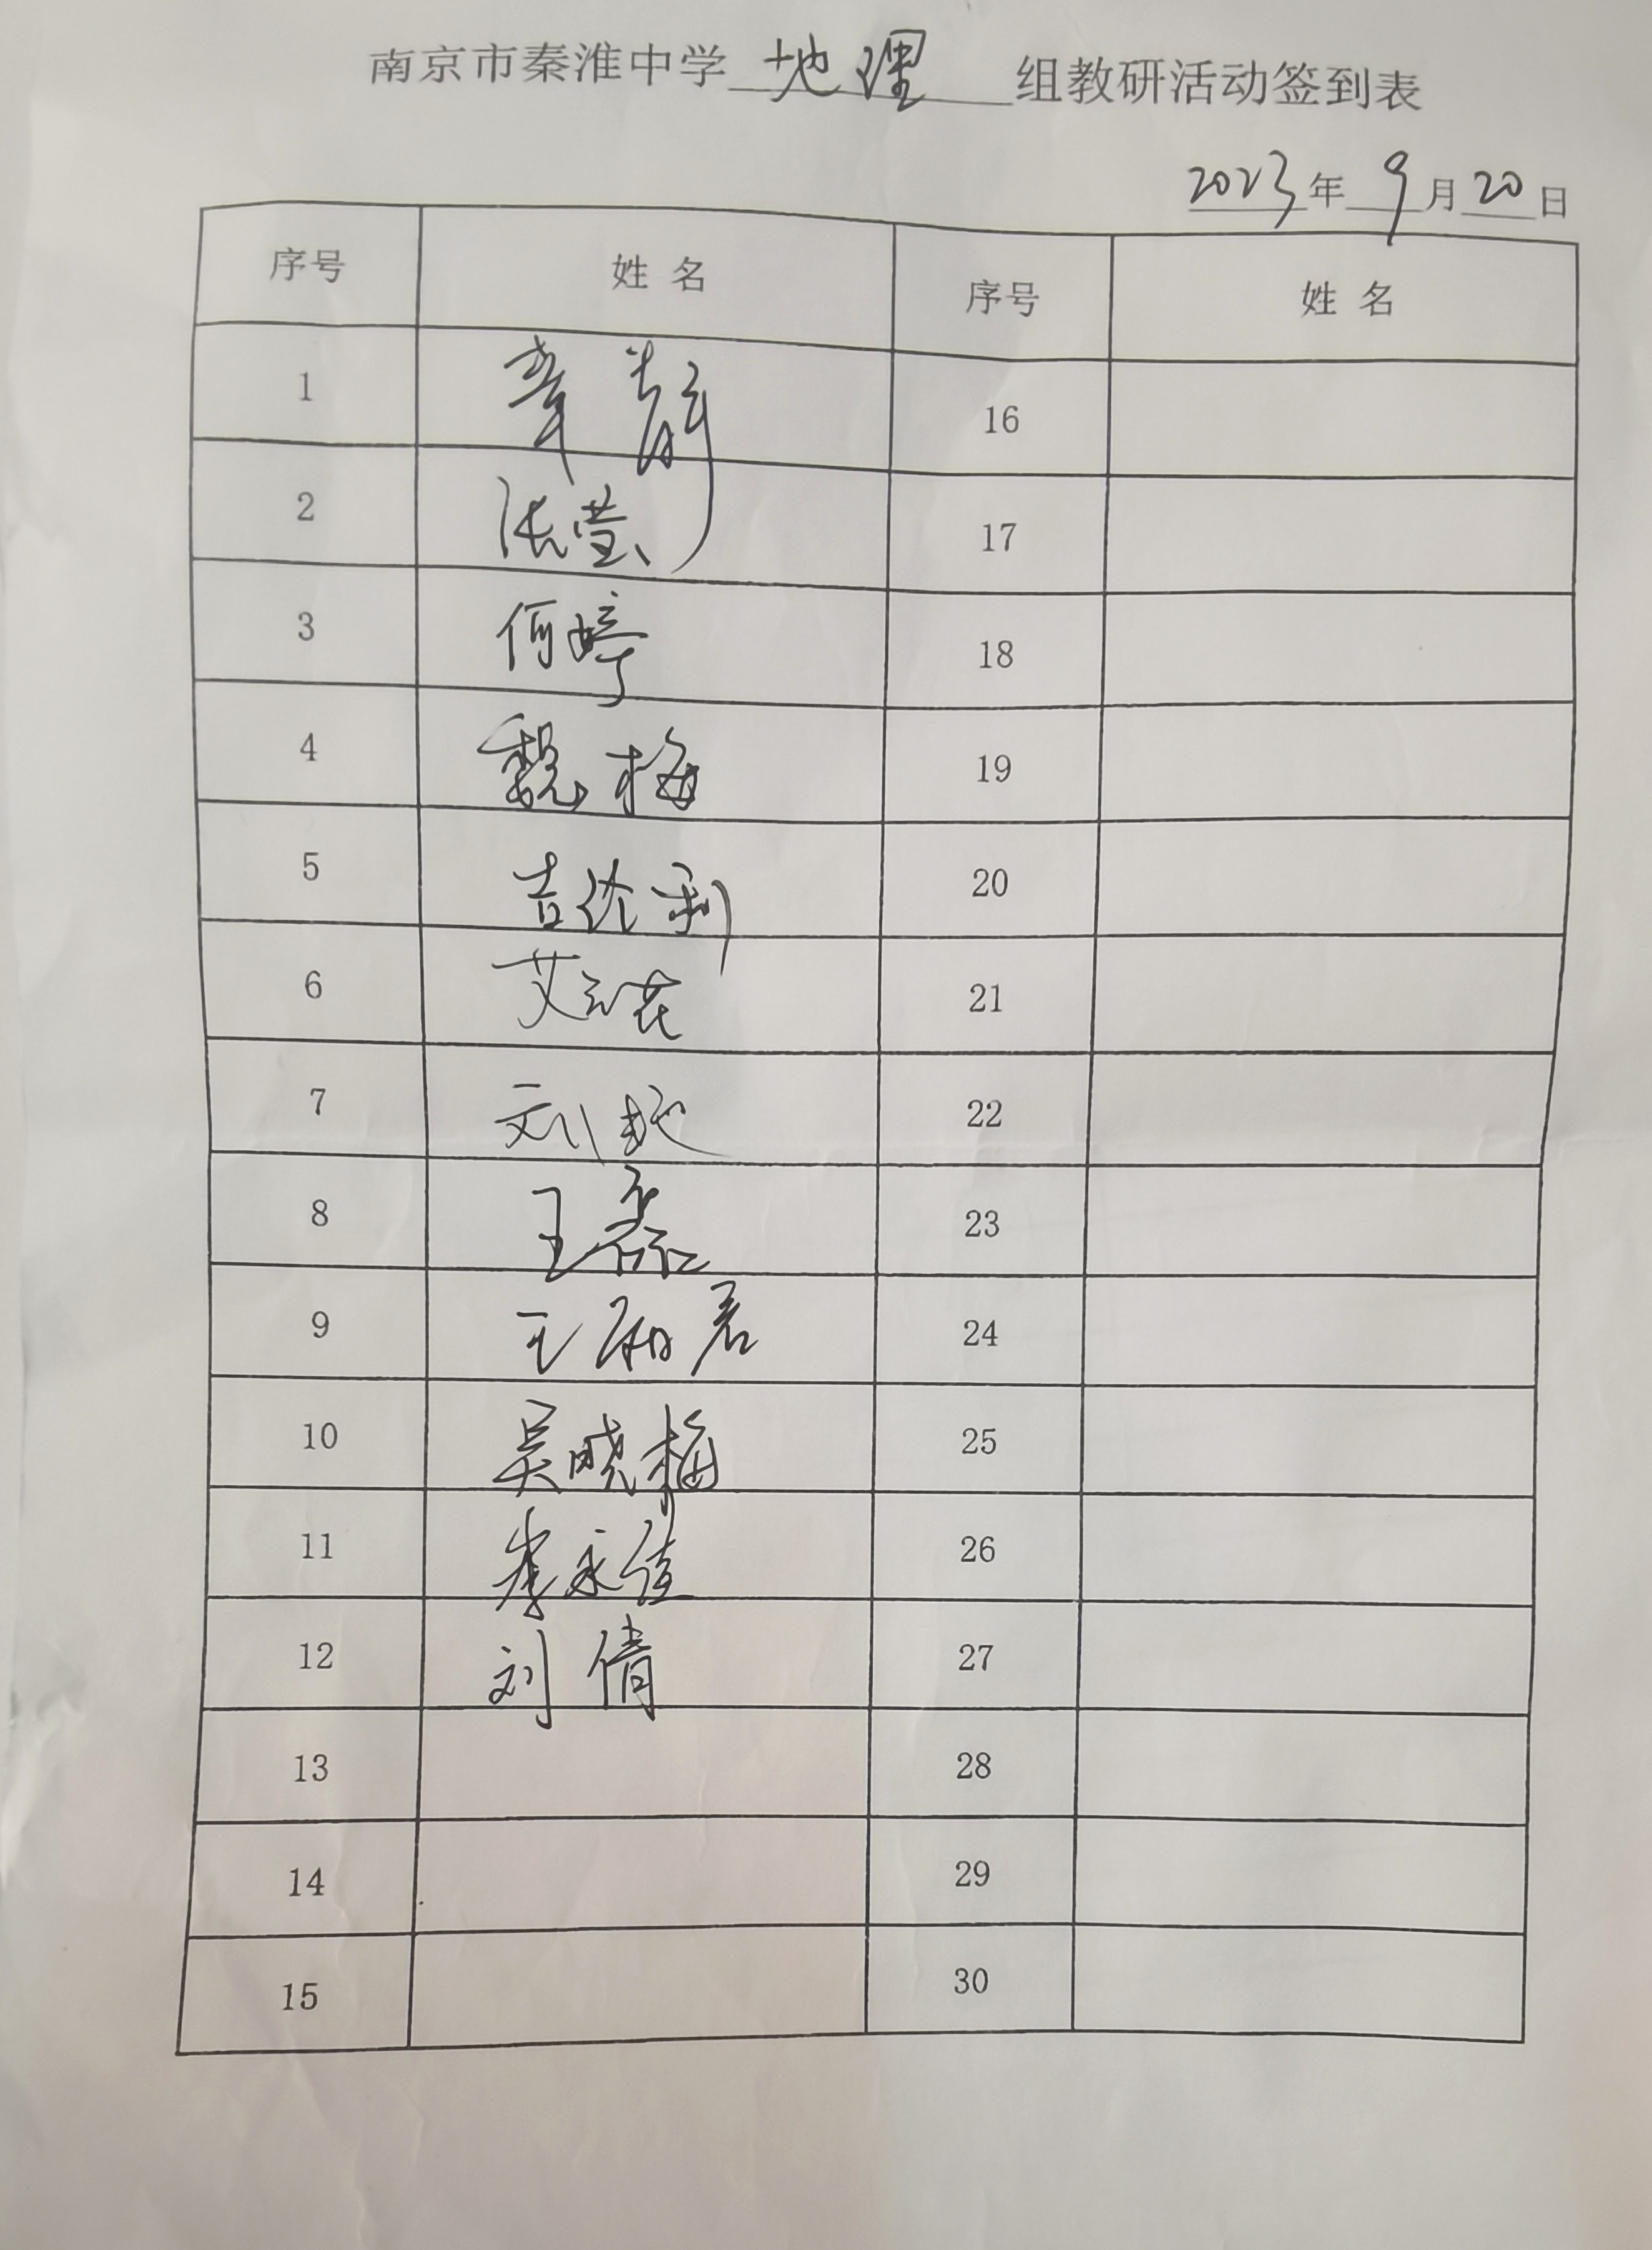 南京市秦淮中学 地理 组教研活动签到表
2023年 9月20日
序号 姓名 序号 姓名
1 章静 16
2 张莹 17
3 何婷 18
4 魏梅 19
5 吉优利 20
6 艾云花 21
7 刘 22
8 王磊 23
9 王君 24
10 吴晓梅 25
11 李永佳 26
12 刘倩 27
13 28
14 29
15 30